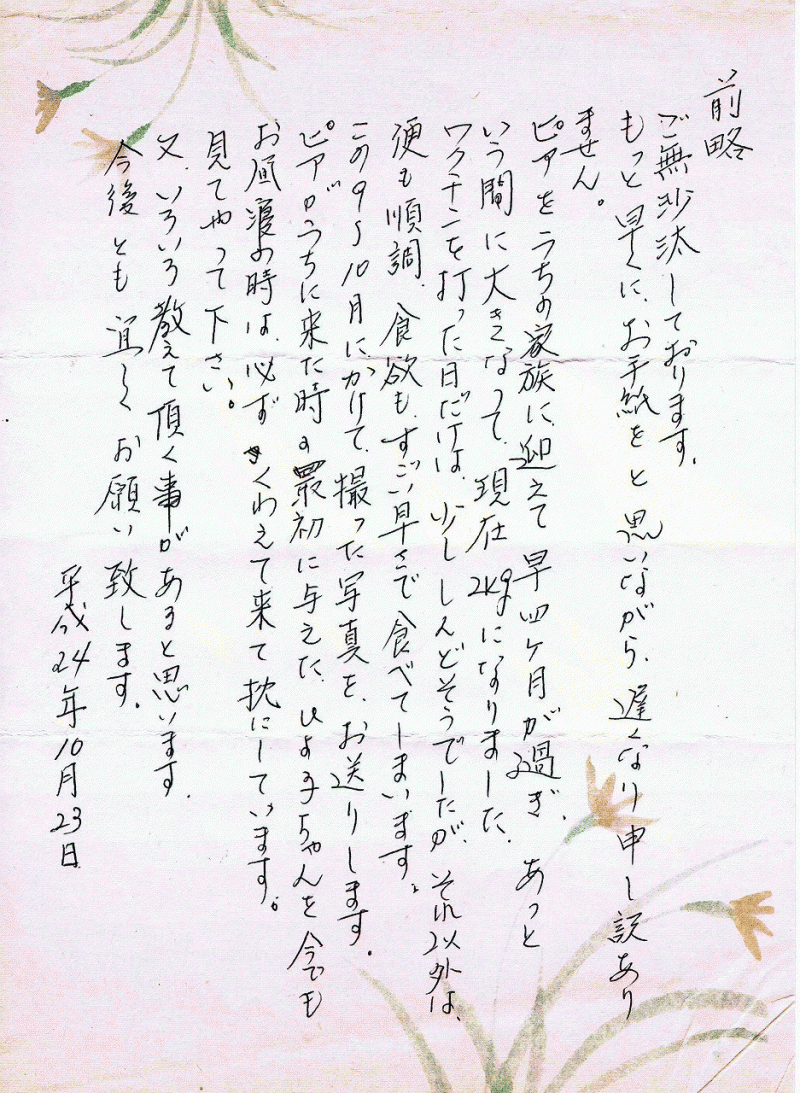 前略
ご無沙汰しております。
もっと早くに、お手紙をと思いながら、遅くなり申し訳あり
ません。
ピアをうちの家族に迎えて早四ケ月が過ぎ、あっと
いう間に大きなって、現在2kgになりました。
ワクチンを打った日だけは、少ししんどそうでしたが、それ以外は、
便も順調、食欲も、すごい早さで食べてしまいます。
この9〜10月にかけて、撮った写真を、お送りします。
ピアがうちに来た時の最初に与えた、ひよ子ちゃんを今でも
お昼寝の時は、必ずくわえて来て枕にしています。
見てやって下さい。
又、いろいろ教えて頂く事があると思います。
今後とも宜しくお願い致します。
平成24年10月23日